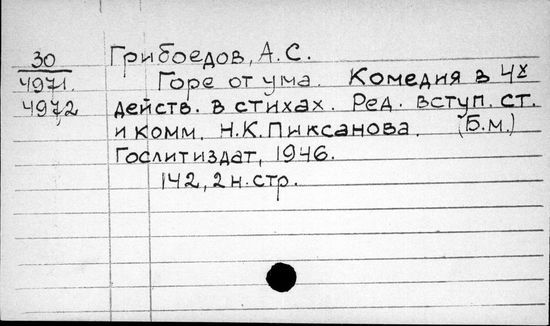 30
4971.
4972
Грибоедов, А.С.
Горе от ума. Комедия в 4х
действ. в стихах. Ред. вступ. ст.
и комм. Н.К.Пиксанова. (Б.м.)
Гослитиздат, 1946.
142, 2 н.стр.